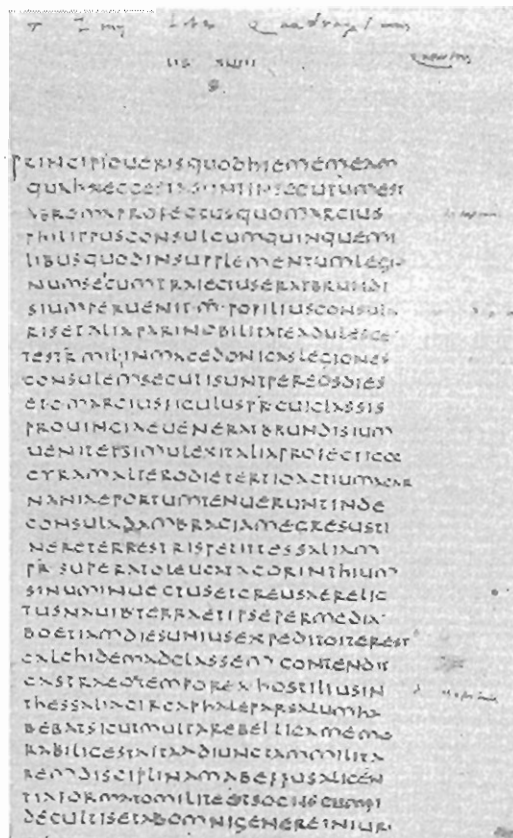 LIB XLIIII
PRINCIPIOUERISQUODHIEMEMEAM
QUAHAECGESTASUNTINSECUTUMEST
ABROMAPROFECTUSQUOMARCIUS
PHILIPPUSCONSULCUMQUINQUEMI
LIBUSQUODINSUPPLEMENTUMLEGIO
NUMSECUMTRAIECTUSERATBRUNDI
SIUMPERUENITM·POPILIUSCONSULA
RISETALIAPARINOBILITATEADULESCE
TESTRMILINMACEDONICASLEGIONES
CONSULEMSECUTISUNTPEREOSDIES
ETCMARCIUSFICULUSPRCUICLASSIS
PROUINCIAEUENERATBRUNDISIUM
UENITETSIMULEXITALIAPROFECTICOR
CYRAMALTERODIETERTIOACTIUMACAR
NANIAEPORTUMTENUERUNTINDE
CONSULADAMBRACIAMEGRESUSTI
NERETERRESTRISPETITTESSALIAM
PRSUPERATOLEUCATACORINTHIUM
SINUMINUECTUSETCREUSAERELIC
TUSNAUIBTERRAETIPSEPERMEDIA
BOETIAMDIESUNIUSEXPEDITOITEREST
CALCHIDEMADCLASSEMCONTENDIT
CASTRAEOTEMPOREAHOSTILIUSIN
THESSALIACIRCAPHALEPARSALUMHA
BEBATSICUTMULTAREBELLICAMEMO
RABILICESTAITAADIUNCTAMMILITA
REMDISCIPLINAMABEFFUSALICEN
TIAFORMATOMILITEETSOCIISCUMFI
DECULTISETABOMNIGENEREINIURI